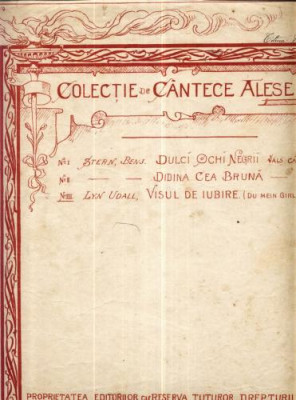 COLECȚIE DE CÂNTECE ALESE
No I STERN, BENJ. DULCI OCHI NEGRII VALS
No II DIDINA CEA BRUNĂ
No III LYN UDALL, VISUL DE IUBIRE (DU MEIN GIRL
PROPRIETATEA EDITORILOR CU RESERVA TUTUROR DREPTURIL